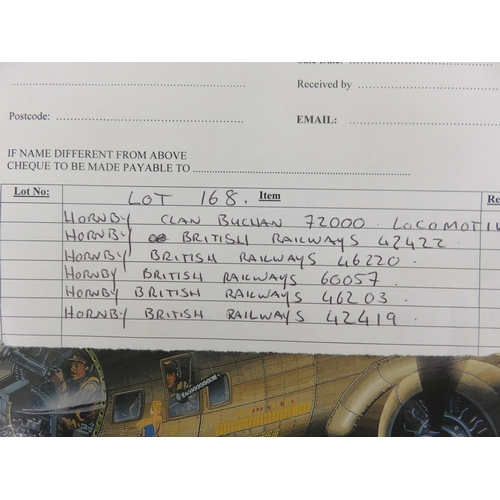 Received by ....................
Postcode: ....................
EMAIL: ....................
IF NAME DIFFERENT FROM ABOVE
CHEQUE TO BE MADE PAYABLE TO ....................
Lot No: Item Re
LOT 168.
HORNBY CLAN BUCHAN 72000. LOCOMOTIV
HORNBY BRITISH RAILWAYS 42422.
HORNBY BRITISH RAILWAYS 46220.
HORNBY BRITISH RAILWAYS 60057.
HORNBY BRITISH RAILWAYS 46203.
HORNBY BRITISH RAILWAYS 42419.